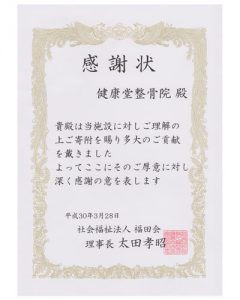 感謝状
健康堂整骨院 殿
貴殿は当施設に対しご理解の
上ご寄附を賜り多大のご貢献
を戴きました
よってここにそのご厚意に対し
深く感謝の意を表します
平成30年3月28日
社会福祉法人 福田会
理事長 太田孝昭